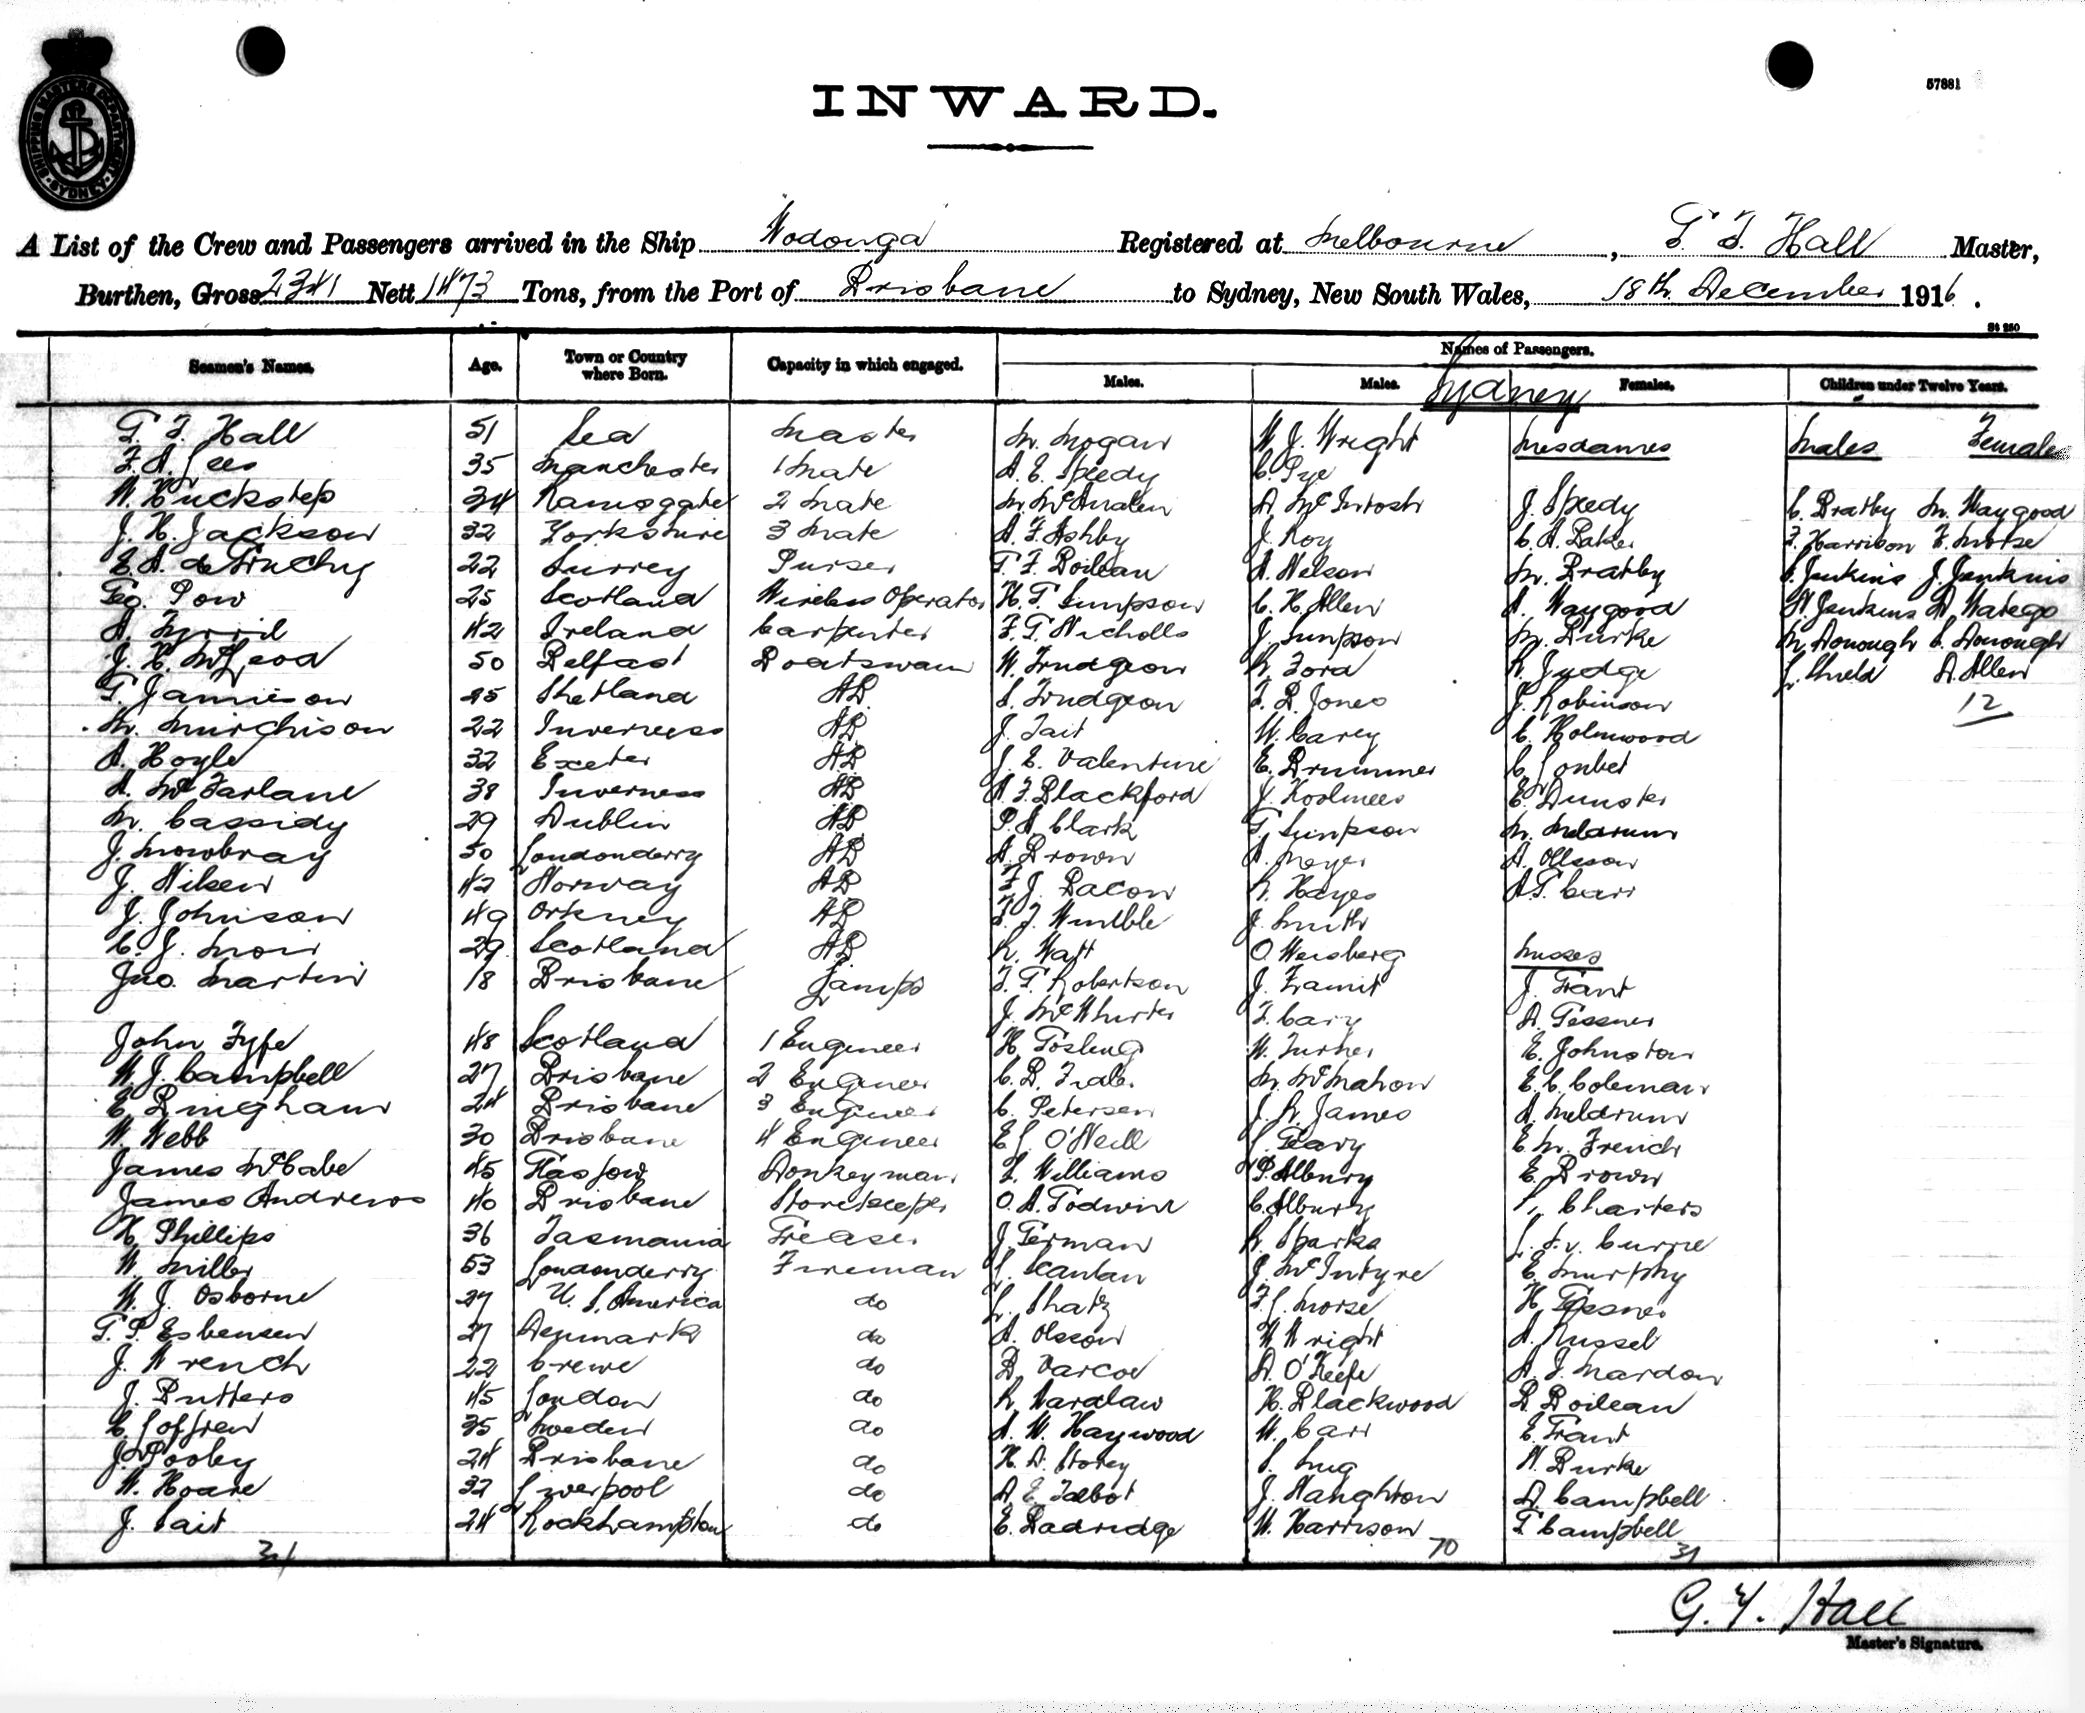 SHIPPING MASTERS DEPARTMENT SYDNEY
57881
INWARD.
A List of the Crew and Passengers arrived in the Ship Wodonga Registered at Melbourne, G. F. Hall Master,
Burthen, Gross 2341 Nett 1473 Tons, from the Port of Brisbane to Sydney, New South Wales, 18th December 1916.
St 250
Seamen's Names. Age. Town or Country where Born. Capacity in which engaged. Names of Passengers.
Males. Males. Females. Children under Twelve Years.
Sydney
G. F. Hall 51 Sea Master M. Mogan W. J. Wright Mesdames Males Females
F. A. Lees 35 Manchester 1 Mate A. E. Speedy C. Pye
W. Huckstep 34 Ramsggate 2 Mate M. A. McIntosh J. Speedy C. Bratby M. Waygood
J. H. Jackson 32 Yorkshire 3 Mate A. F. Ashby J. Roy C. A. Baker F. Harrison F. Morse
E. A. de Gruchy 22 Surrey Purser G. F. Boileau A. Nelson M. Bratby S. Jenkins J. Jenkins
Geo. Pow 25 Scotland Wireless Operator H. G. Simpson C. H. Allen A. Waygood W. Jenkins A. Watego
A. Tyrril 42 Ireland Carpenter F. G. Nicholls J. Simpson M. Burke M. Donough S. Donough
J. H. McLeod 50 Belfast Boatswain W. Trudgeon R. Ford R. Judge L. Shield A. Allen
G. Jamieson 25 Shetland AB S. Trudgeon F. B. Jones J. Robinson 12
M. Murchison 22 Inverness AB J. Tait W. Carey C. Holmwood
A. Hoyle 32 Exeter AB J. E. Valentine E. Brummer C. Loubet
A. McFarlane 38 Inverness AB A. F. Blackford J. Koolmees E. Dunster
M. Cassidy 29 Dublin AB P. A. Clark G. Simpson M. Meldrum
J. Mowbray 50 Londonderry AB A. Brown A. Meyer A. Ollsson
J. Nilsen 42 Norway AB F. J. Bacon R. Hayes A. G. Carr
J. Johnson 49 Orkney AB F. J. Wimble J. Smith
C. J. Moir 29 Scotland AB R. Watt O. Weisberg Misses
Jno. Martin 18 Brisbane Lamps F. G. Robertson J. Zamit J. Grant
J. McWhirter F. Cary A. Gessner
John Fyfe 48 Scotland 1 Engineer H. Gosling W. Turner E. Johnston
W. J. Campbell 27 Brisbane 2 Engineer C. B. M. McMahon E. C. Coleman
E. Bingham 24 Brisbane 3 Engineer C. Petersen J. R. James A. Meldrum
W. Webb 30 Brisbane 4 Engineer E. J. O'Neill S. Geary E. M. French
James McCabe 45 Glasgow Donkeyman L. Williams P. Albury E. Brown
James Andrews 40 Brisbane Storekeeper O. A. Godwin C. Albury Charters
H. Phillips 36 Tasmania Greaser J. German R. Sparks L. Currie
W. Miller 53 Londonderry Fireman J. Scanlan J. McIntyre E. Murphy
W. J. Osborne 27 U. S. America do L. Shatz F. L. Morse H. Gessner
G. P. Esbensen 27 Denmark do A. Olsson W. Wright A. Russel
J. Wrench 22 Crewe do B. Varcoe A. O'Keefe A. J. Mardon
J. Butters 45 London do R. Wardlaw H. Blackwood B. Boileau
C. Loffren 35 Sweden do A. W. Haywood W. Carr E. Grant
J. Pooley 24 Brisbane do H. A. Storey S. Lug N. Burke
W. Hoare 32 Liverpool do A. E. Talbot J. Haughton A. Campbell
J. Tait 24 Rockhampton do E. Badridge W. Harrison G. Campbell
34 70 31
G. F. Hall
Master's Signature.